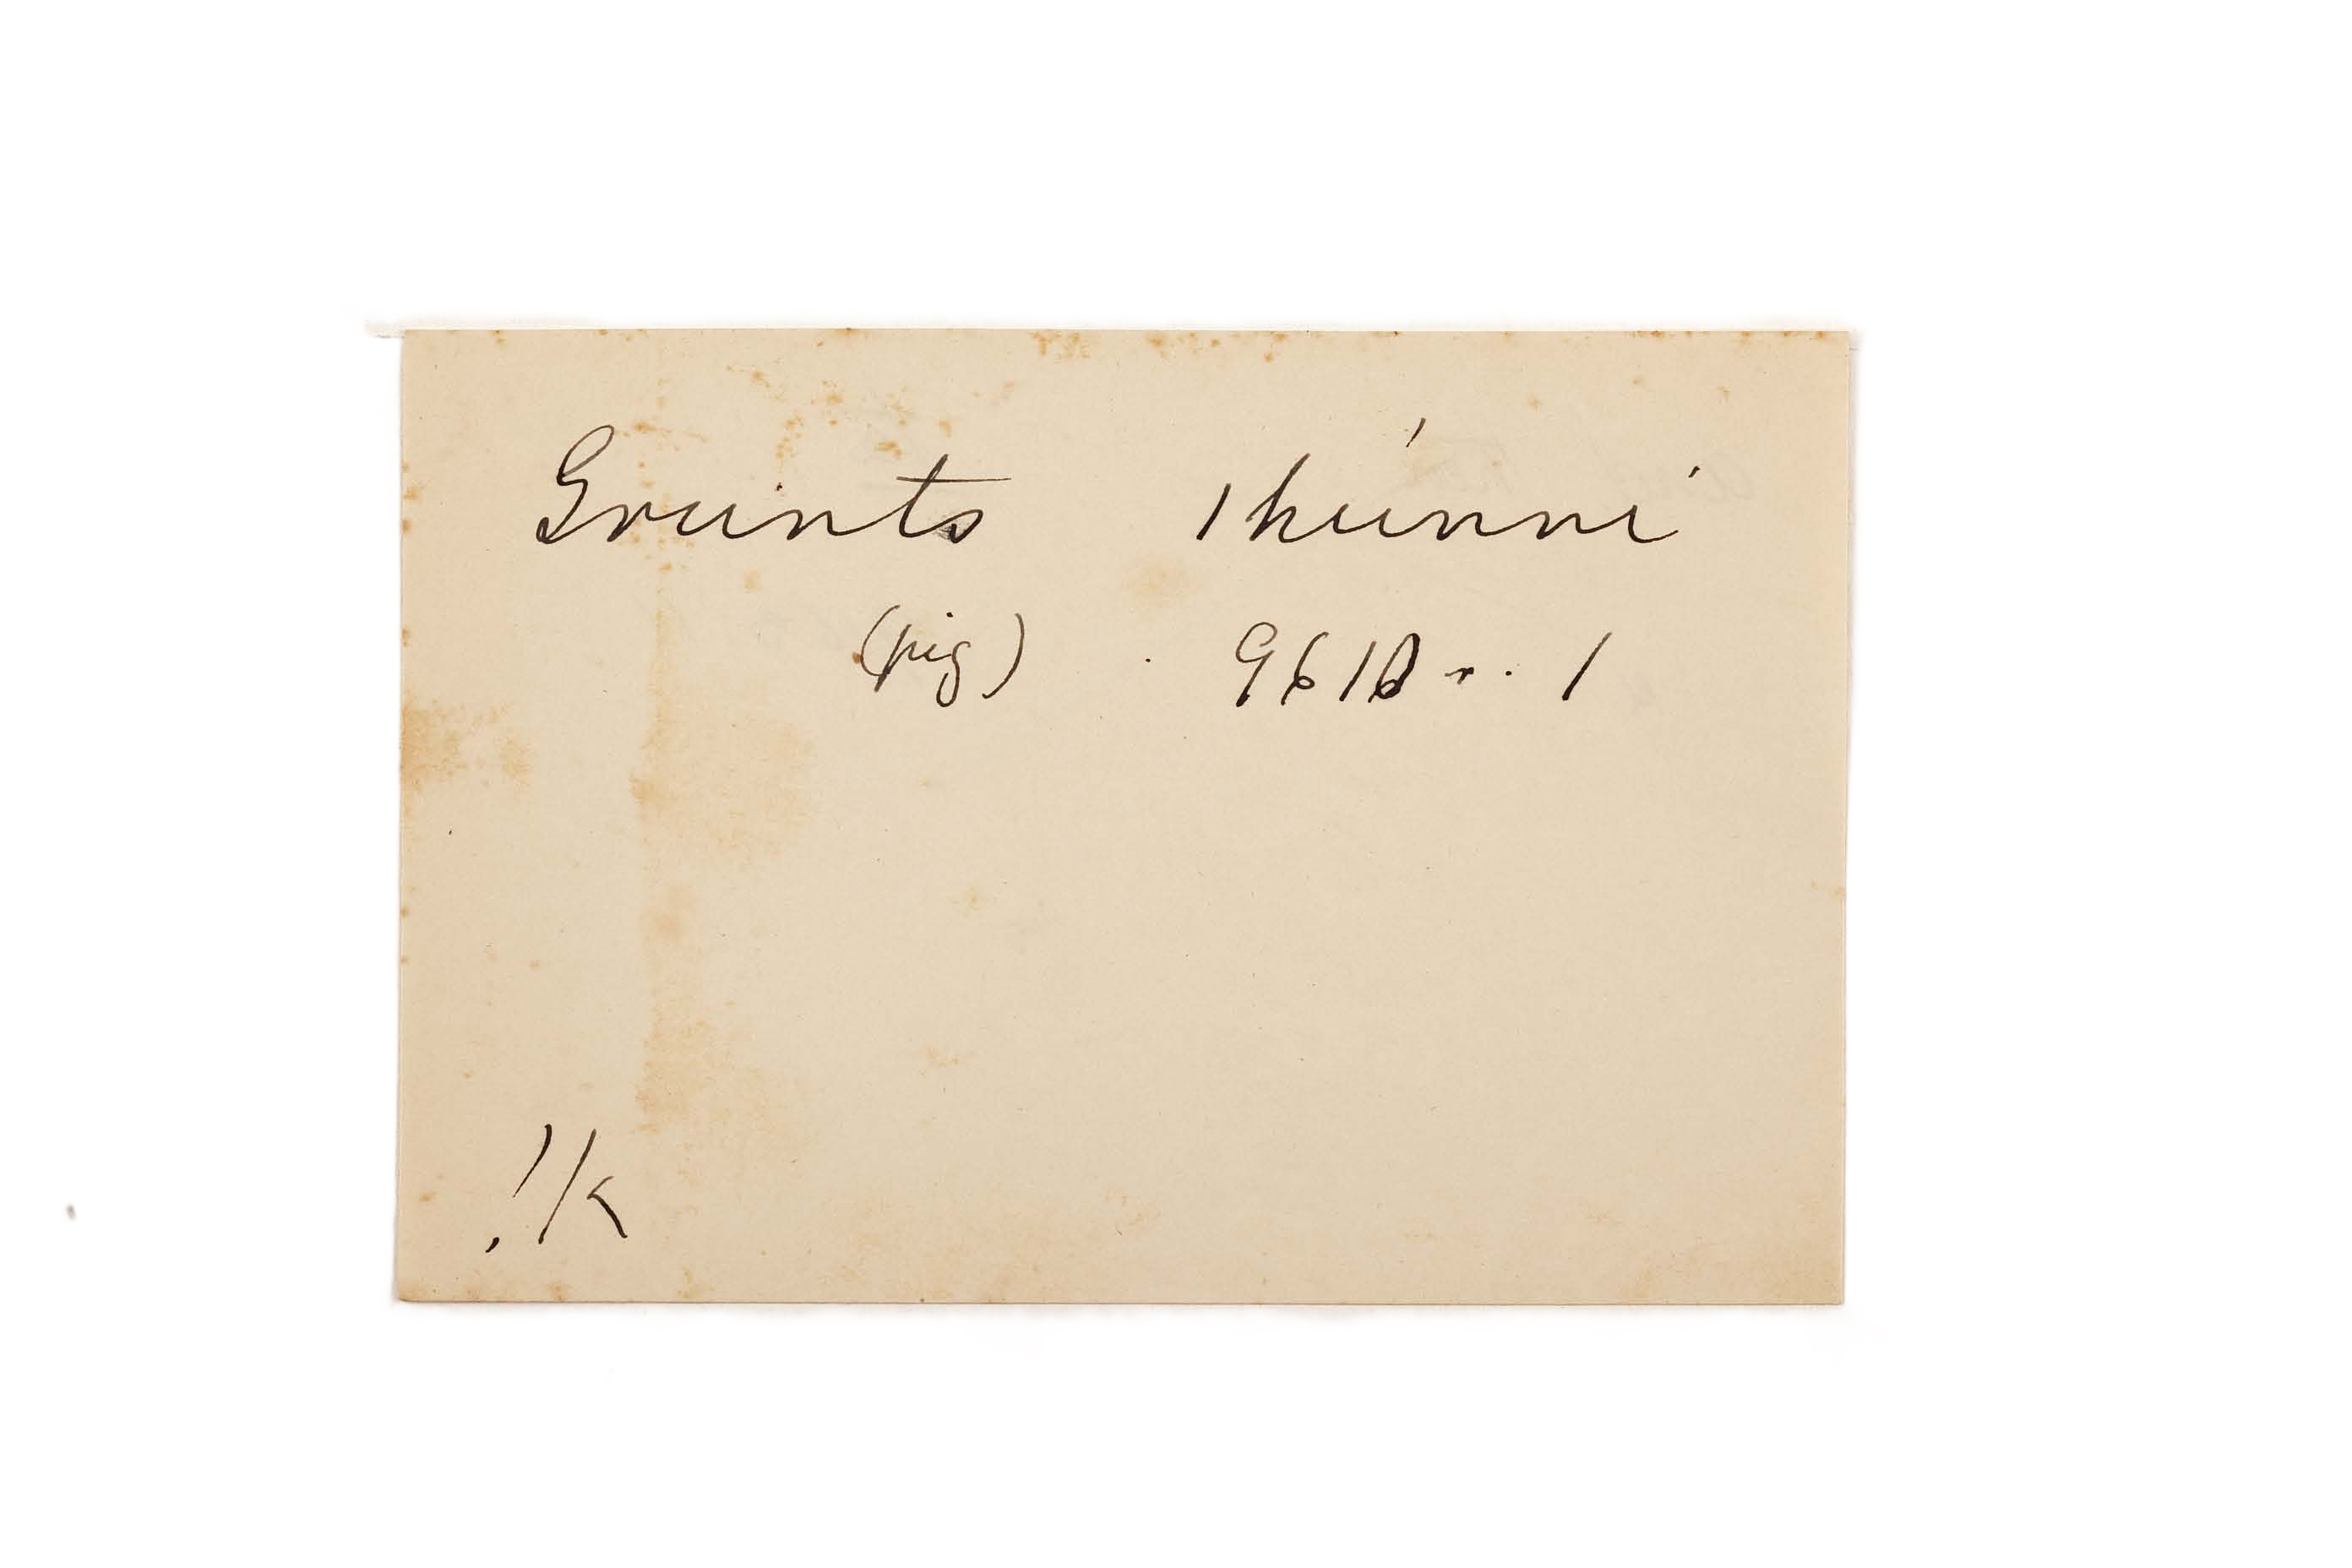 Grunts ǀhúnni
(pig) 9610 .. 1
!k